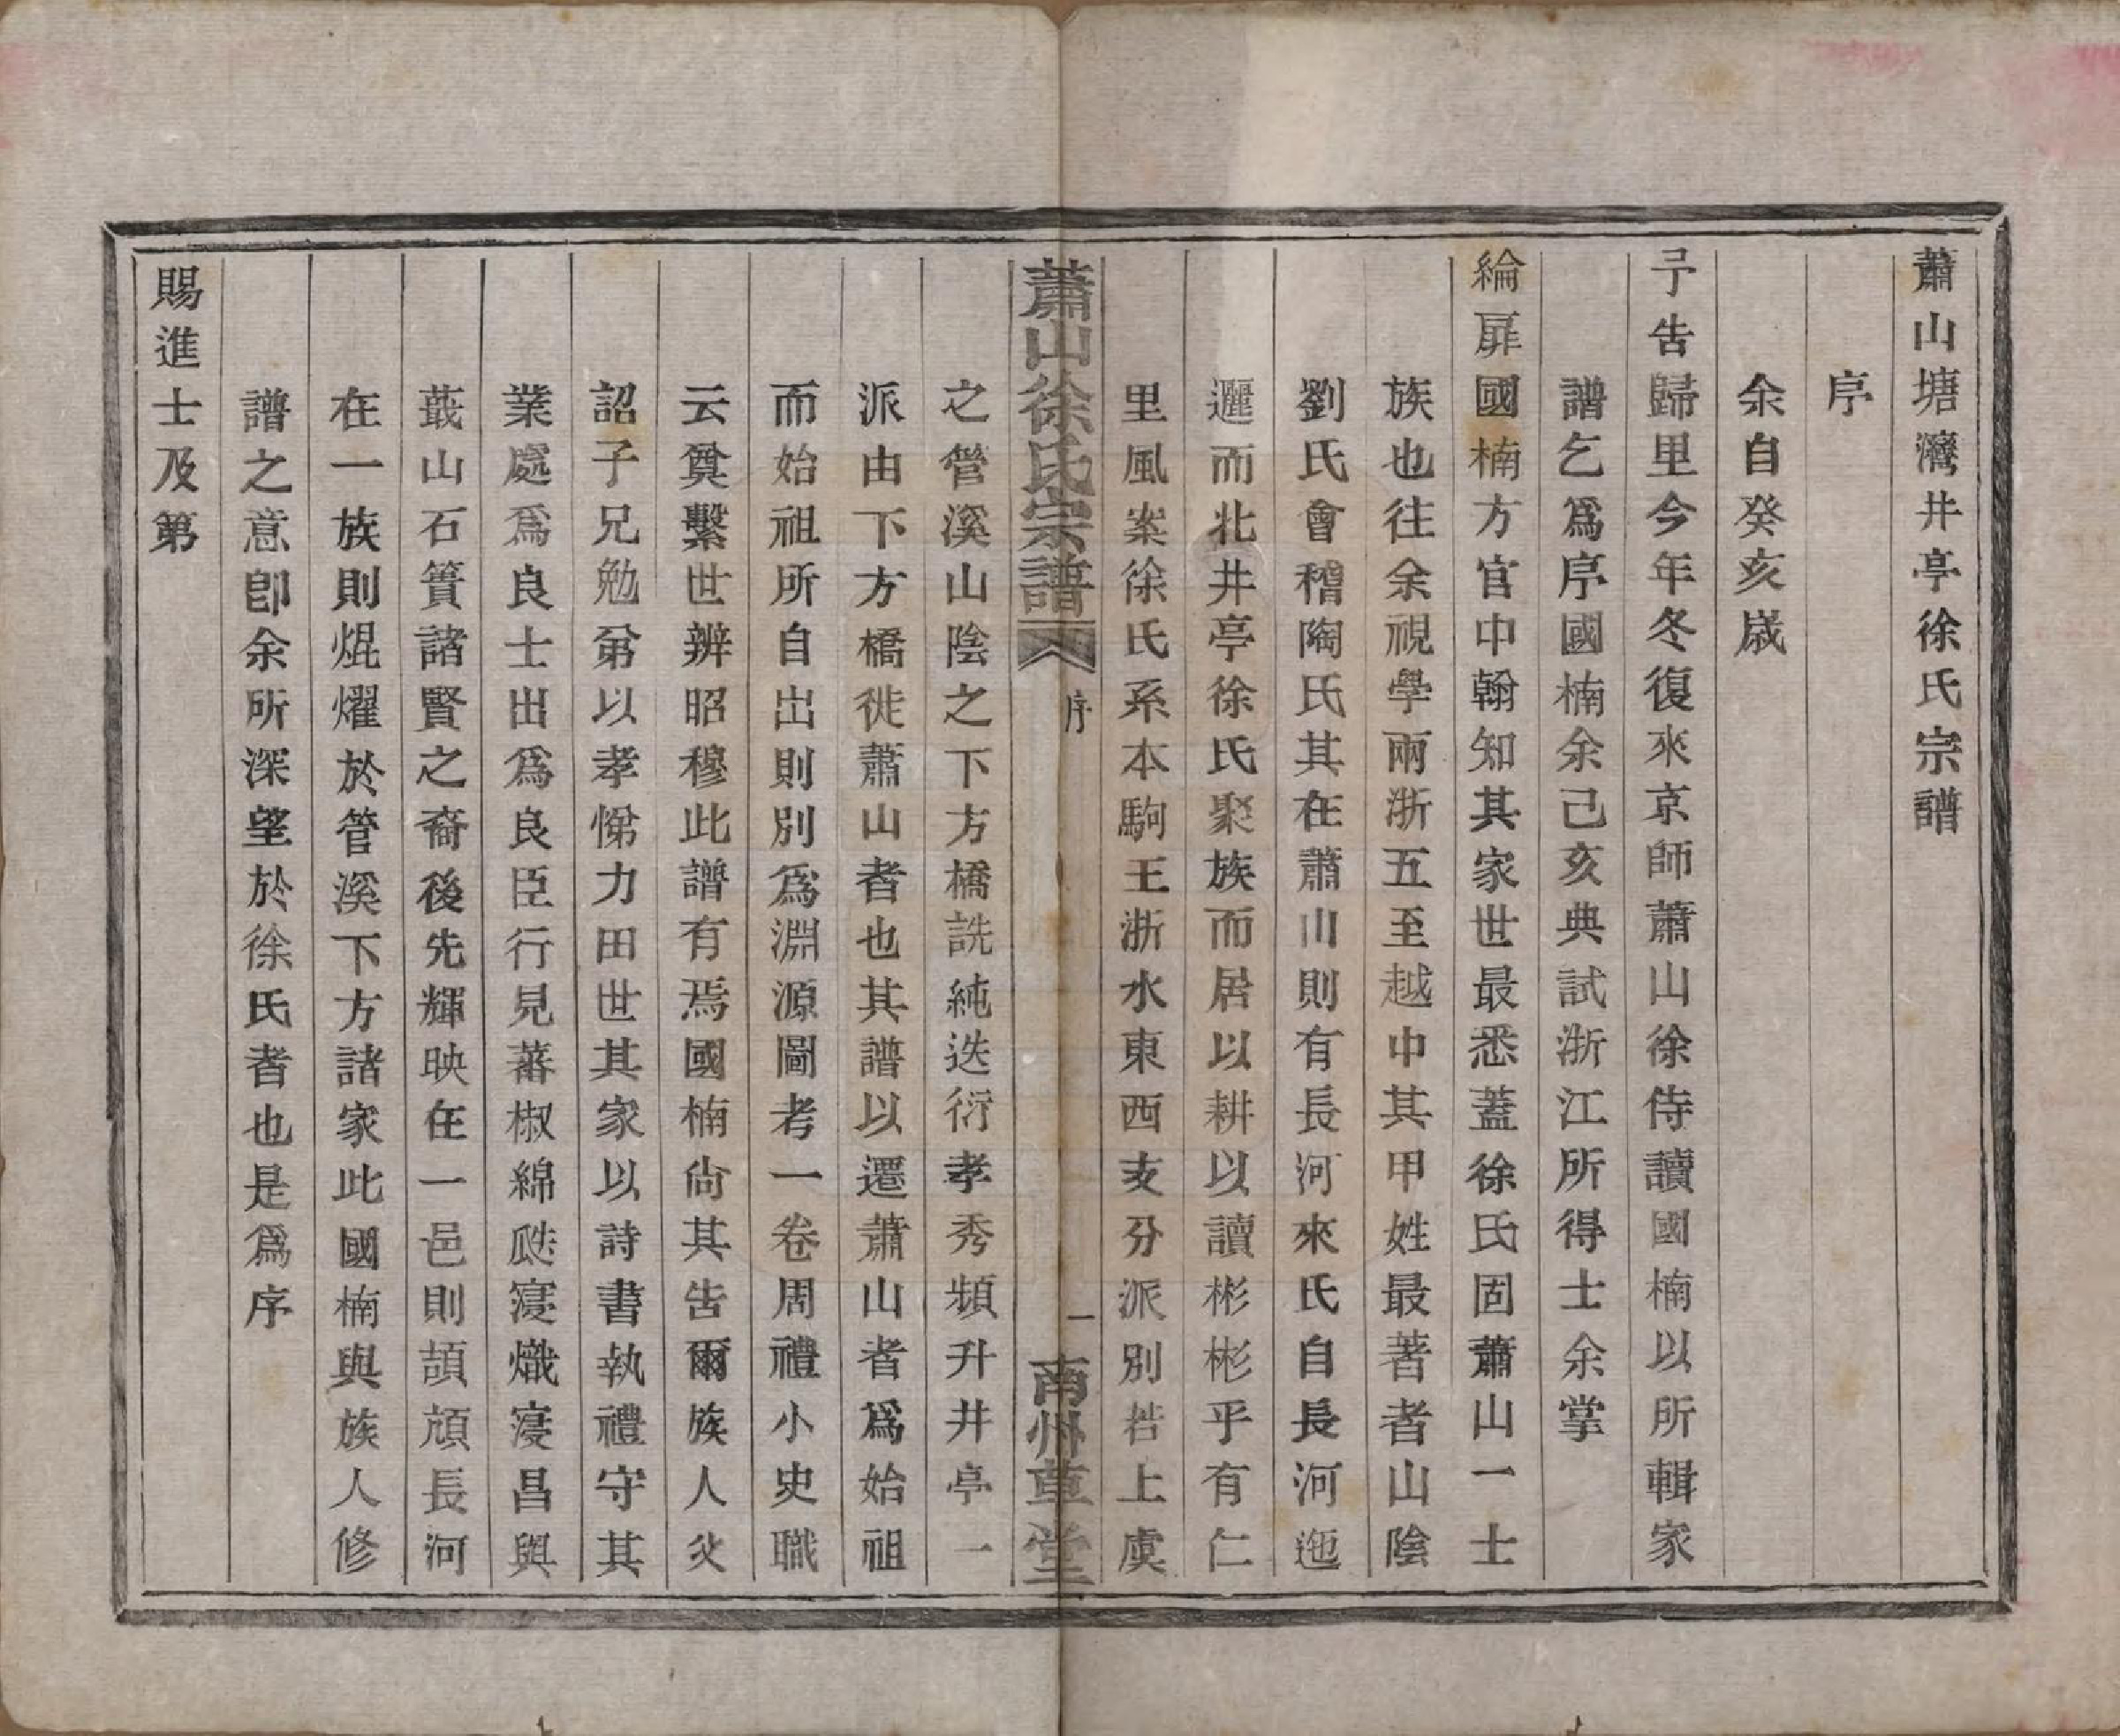 蕭山塘灣井亭徐氏宗譜
序
余自癸亥歲
予告歸里今年冬復來京師蕭山徐侍讀國楠以所輯家
譜乞爲序國楠余己亥典試浙江所得士余掌
綸扉國楠方官中翰知其家世最悉蓋徐氏固蕭山一士
族也往余視學兩浙五至越中其甲姓最著者山陰
劉氏會稽陶氏其在蕭山則有長河來氏自長河迤
邐而北井亭徐氏聚族而居以耕以讀彬彬乎有仁
里風案徐氏系本駒王浙水東西支分派別若上虞
蕭山徐氏宗譜
序
一
南州草堂
之管溪山陰之下方橋詵純迭衍孝秀頻升井亭一
派由下方橋徙蕭山者也其譜以遷蕭山者爲始祖
而始祖所自出則別爲淵源圖考一卷周禮小史職
云奠繫世辨昭穆此譜有焉國楠尙其告爾族人父
詔子兄勉弟以孝悌力田世其家以詩書執禮守其
業處爲良士出爲良臣行見蕃椒綿瓞寖熾寖昌與
蕺山石簣諸賢之裔後先輝映在一邑則頡頏長河
在一族則焜燿於管溪下方諸家此國楠與族人修
譜之意卽余所深望於徐氏者也是爲序
賜進士及第